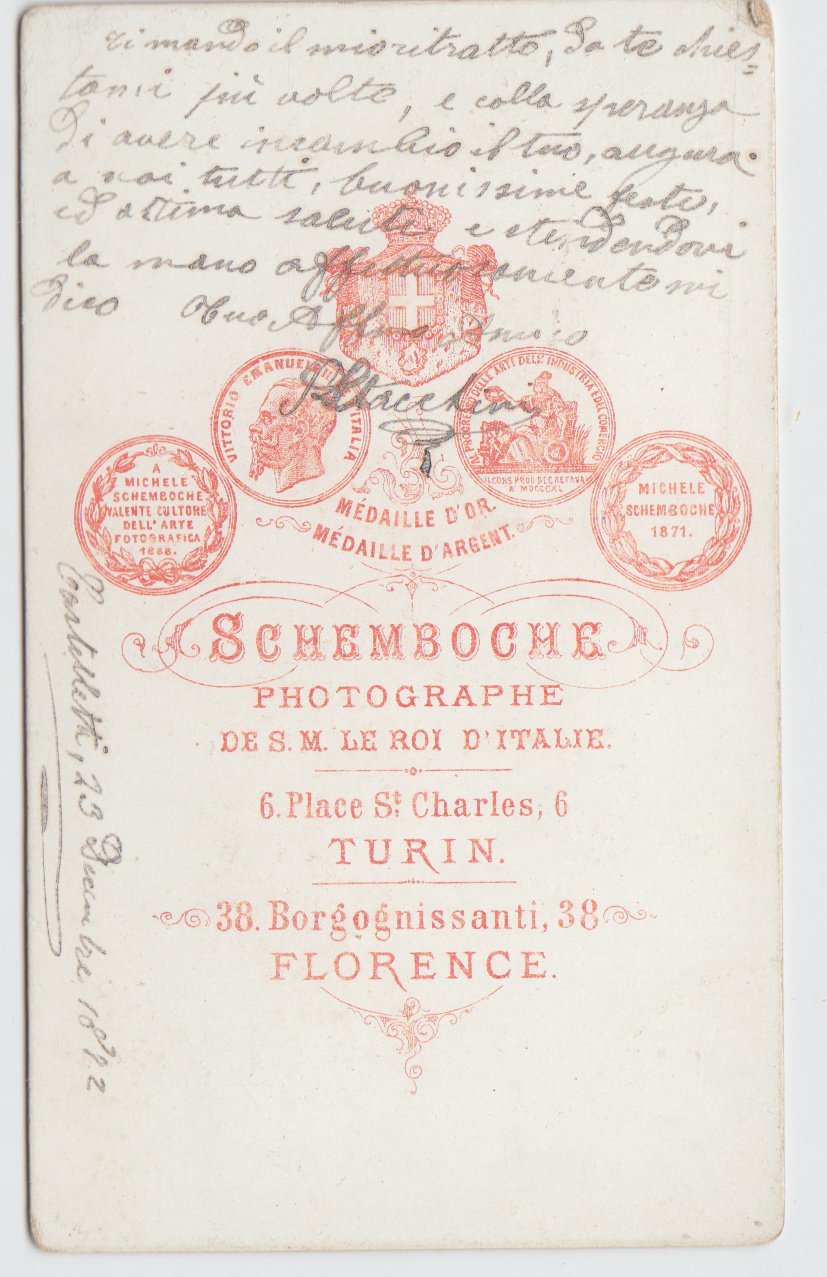 ti mando il mio ritratto, da te chies=
tomi più volte, e colla speranza
di avere incambio il tuo, augura
a voi tutti, buonissime feste,
ed ottima salute e stendendovi
la mano affettuosamente mi
dico Tuo Affmo Amico
VITTORIO EMANUELE RE D'ITALIA
AL PROGRESSO DELLE ARTI DELL'INDUSTRIA E DEL COMMERCIO
A MDCCCXL
A
MICHELE
SCHEMBOCHE
VALENTE CULTORE
DELL'ARTE
FOTOGRAFICA
1868.
MICHELE
SCHEMBOCHE
1871.
MÉDAILLE D'OR.
MÉDAILLE D'ARGENT.
SCHEMBOCHE
PHOTOGRAPHE
DE S. M. LE ROI D'ITALIE.
6. Place St. Charles, 6
TURIN.
38. Borgognissanti, 38
FLORENCE.
23 Decembre 1872